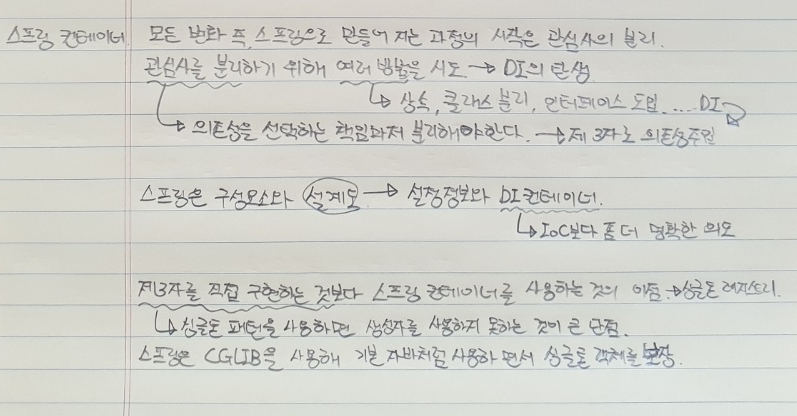 스프링 컨테이너 모든 변화 즉, 스프링으로 만들어 지는 과정의 시작은 관심사의 분리.
관심사를 분리하기 위해 여러 방법을 시도 → DI의 탄생
↳ 상속, 클래스 분리, 인터페이스 도입, .... DI
↳ 의존성을 선택하는 책임마저 분리해야한다. → 제 3자로 의존성주입
스프링은 구성요소와 설계도 → 설정정보와 DI 컨테이너.
↳ IoC보다 좀 더 명확한 의미
제3자를 직접 구현하는 것보다 스프링 컨테이너를 사용하는 것의 이점 → 싱글톤 레지스트리.
↳ 싱글톤 패턴을 사용하면 생성자를 사용하지 못하는 것이 큰 단점.
스프링은 CGLIB을 사용해 기본 자바처럼 사용하면서 싱글톤 객체를 보장.